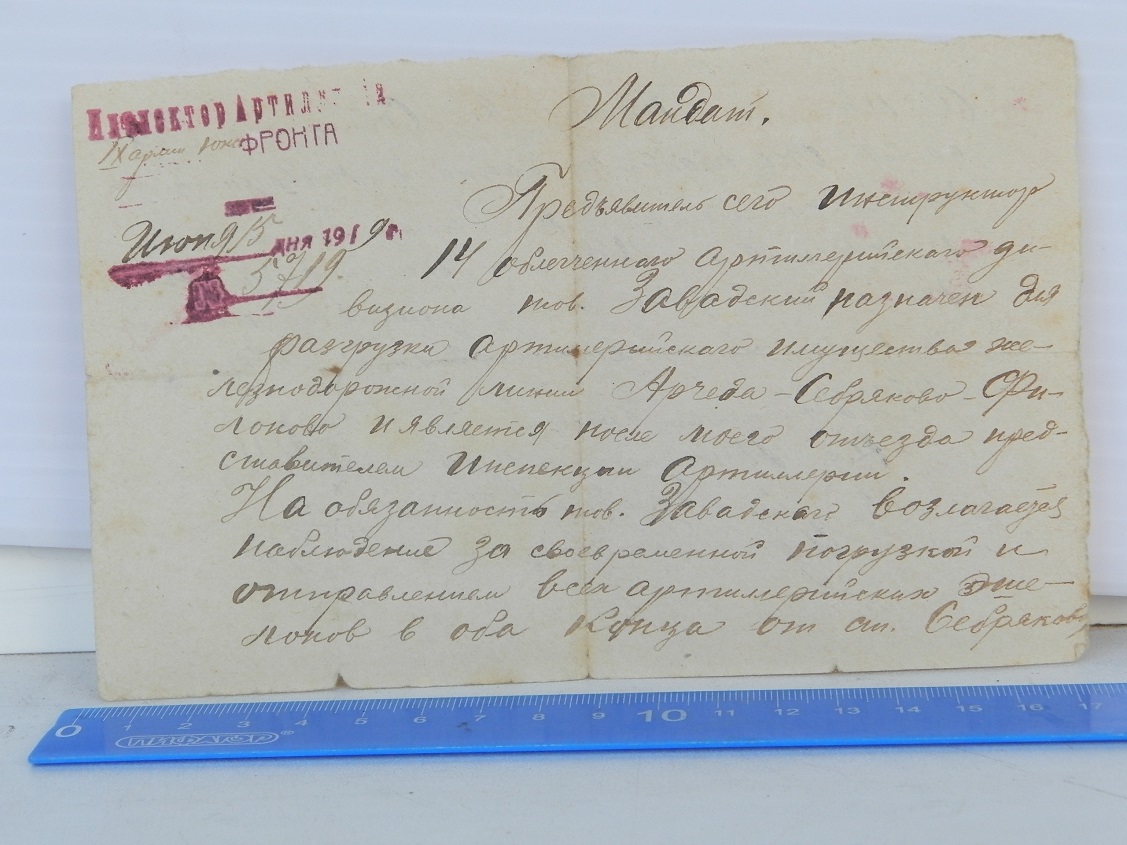 Инспектор Артиллерия
IX армии Южн
ФРОНТА
Июня 15 дня 1919 г.
5719
Мандат.
Предъявитель сего инструктор
14 облегченного артиллерийского ди-
визиона тов. Завадский назначен для
разгрузки артиллерийского имущества же-
лезнодорожной линии Арчеда - Себряково - Фи-
лоново и является после моего отъезда пред-
ставителем Инспекции артиллерии.
На обязанность тов. Завадского возлагается
наблюдение за своевременной погрузкой и
отправлением всех артиллерийских эше-
лонов в оба конца от ст. Себряково
0 1 2 3 4 5 6 7 8 9 10 11 12 13 14 15 16 17